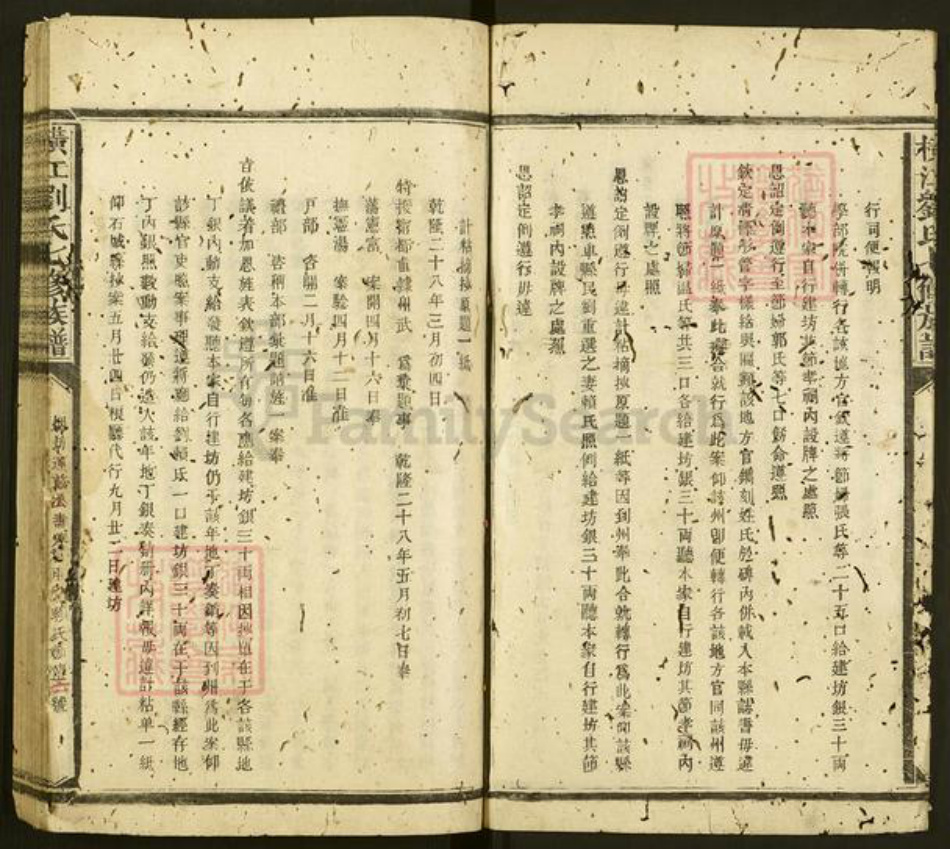 行司便
學部院併轉行各該地方官欽遵將節婦張氏等二十五口給建坊銀三十兩
聽本家自行建坊其節孝祠內設牌之處照
恩詔定例遵行至節婦郭氏等七口
欽定清標彤管字樣給與匾額該地方官鐫刻姓氏於碑內併載入本縣誌書毋違
計原題一紙奉此擬合就行為此案仰該州卽便轉行各該地方官同該州遵
照將節婦溫氏等共三口各給建坊銀三十兩聽本家自行建坊其節孝祠內
設牌之處照
恩詔定例遵行毋違計粘摘抄原題一紙等因到州奉此合就轉行為此案仰該縣
遵照卑縣民劉重選之妻賴氏照例給建坊銀三十兩聽本家自行建坊其節
孝祠內設牌之處照
恩詔定例遵行毋違
計粘摘抄原題一紙
乾隆二十八年三月初四日
特授寧都直隸州武 為彙題事 乾隆二十八年五月初七日奉
藩憲富 案開四月十六日奉
撫憲湯 案驗四月十二日准
戶部 咨開二月十六日准
禮部 咨稱本部彙題請旌一案奉
旨依議著加恩旌表欽遵所有每名應給建坊銀三十兩相因地項在于各該縣地
丁銀內動支給發聽本家自行建坊仍于該年地丁奏銷等因到州為此案仰
該縣官吏照案事理遵將應給劉賴氏一口建坊銀三十兩在于該縣經存地
丁內銀照數動支給發仍造入該年地丁銀奏銷冊內詳報毋違計粘單一紙
仰石城縣抄案五月廿四日 代行九月廿二日建坊
橫江劉氏七修族譜
橫江劉氏七修族譜